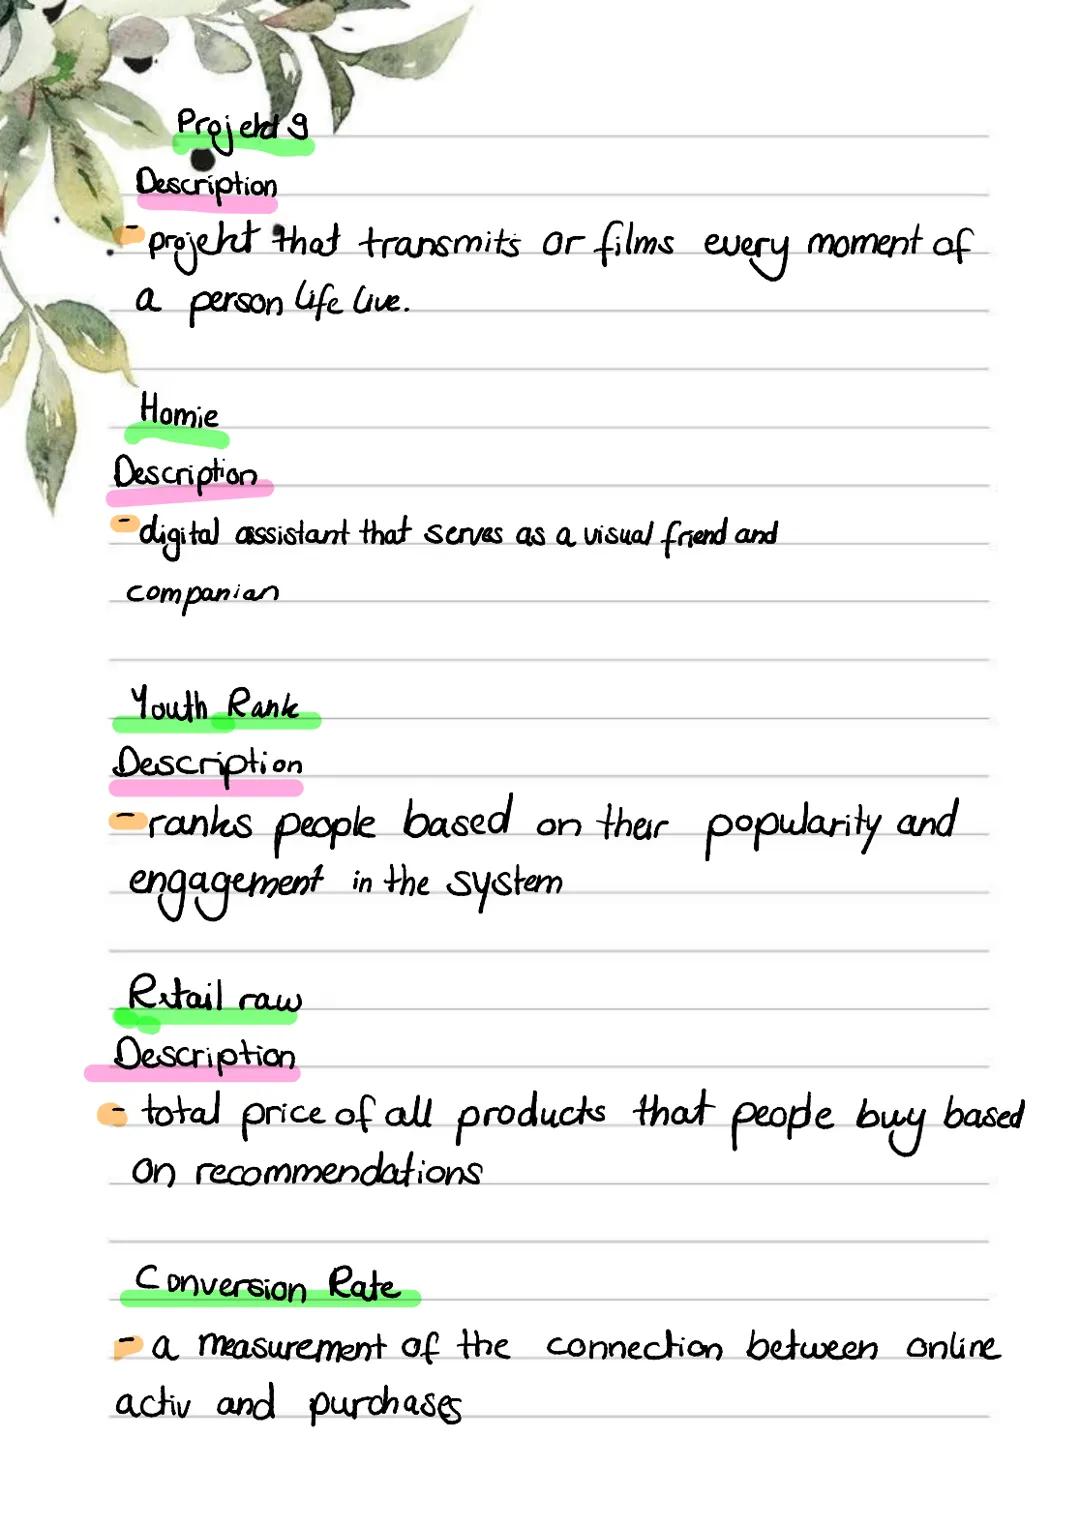 Projekt 9
Description
- projekt that transmits or films every moment of
a person life live.
Homie
Description
- digital assistant that serves as a visual friend and
companian
Youth Rank
Description
- ranks people based on their popularity and
engagement in the system
Retail raw
Description
- total price of all products that people buy based
on recommendations
Conversion Rate
- a measurement of the connection between online
activ and purchases